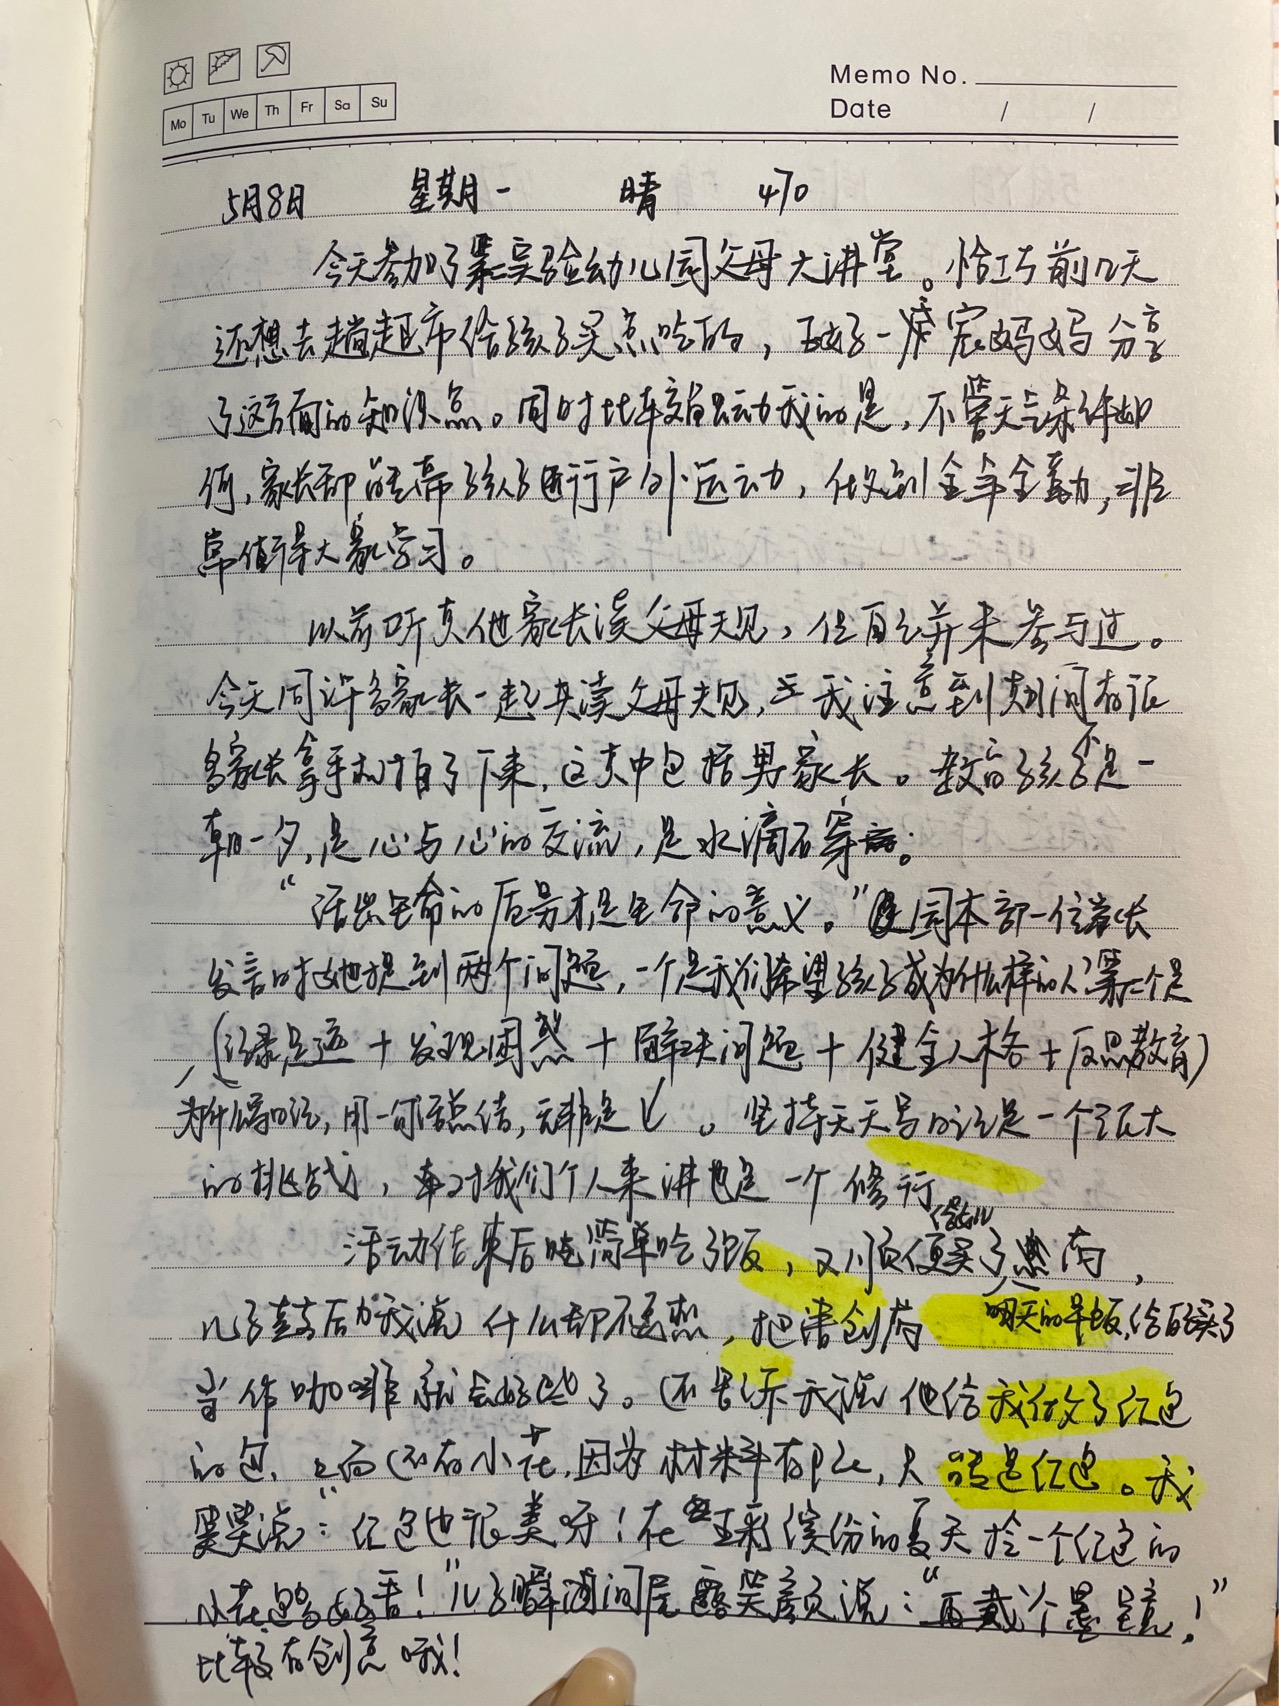 Memo No.
Mo Tu We Th Fr Sa Su
Date / /
5月8日 星期一 晴 470
今天参加了第二实验幼儿园父母大讲堂。恰巧前几天
还想去趟超市给孩子买点吃的，宸宸妈妈分享
了这方面的知识点。同时比较触动我的是，不管天气条件如
何，家长都能带孩子进行户外运动，做到全年全勤，非
常值得大家学习。
以前听其他家长读父母规，但自己并未参与过。
今天同许多家长一起共读父母规，我注意到期间有很
多家长拿手机拍了下来，这其中包括男家长。教育孩子不是一
朝一夕，是心与心的交流，是水滴石穿。
“活出生命的厚易才是生命的意义。”园本部一位家长
发言时她提到两个问题，一个是我们希望孩子成为什么样的人？第二个是
（记录足迹＋发现困惑＋解决问题＋健全人格＋反思教育）
为什么写日记，用一句话总结，无非是 。坚持天天写日记是一个很大
的挑战，对我们个人来讲也是一个修行
活动结束后简单吃了饭，又顺便买了
给幼儿
儿子鼓 我说 什么都不
明天的早饭，给自己买了
当作咖啡就会好些了。还告诉我说他给我做了红色
的包，上面还有小花，因为材料有限，只能是红色。我
笑笑说：“红色也很美呀！在五彩缤纷的夏天捡一个红色的
小花 ！”儿子瞬间露笑颜说：“再戴个墨镜！”
比较有创意哦！